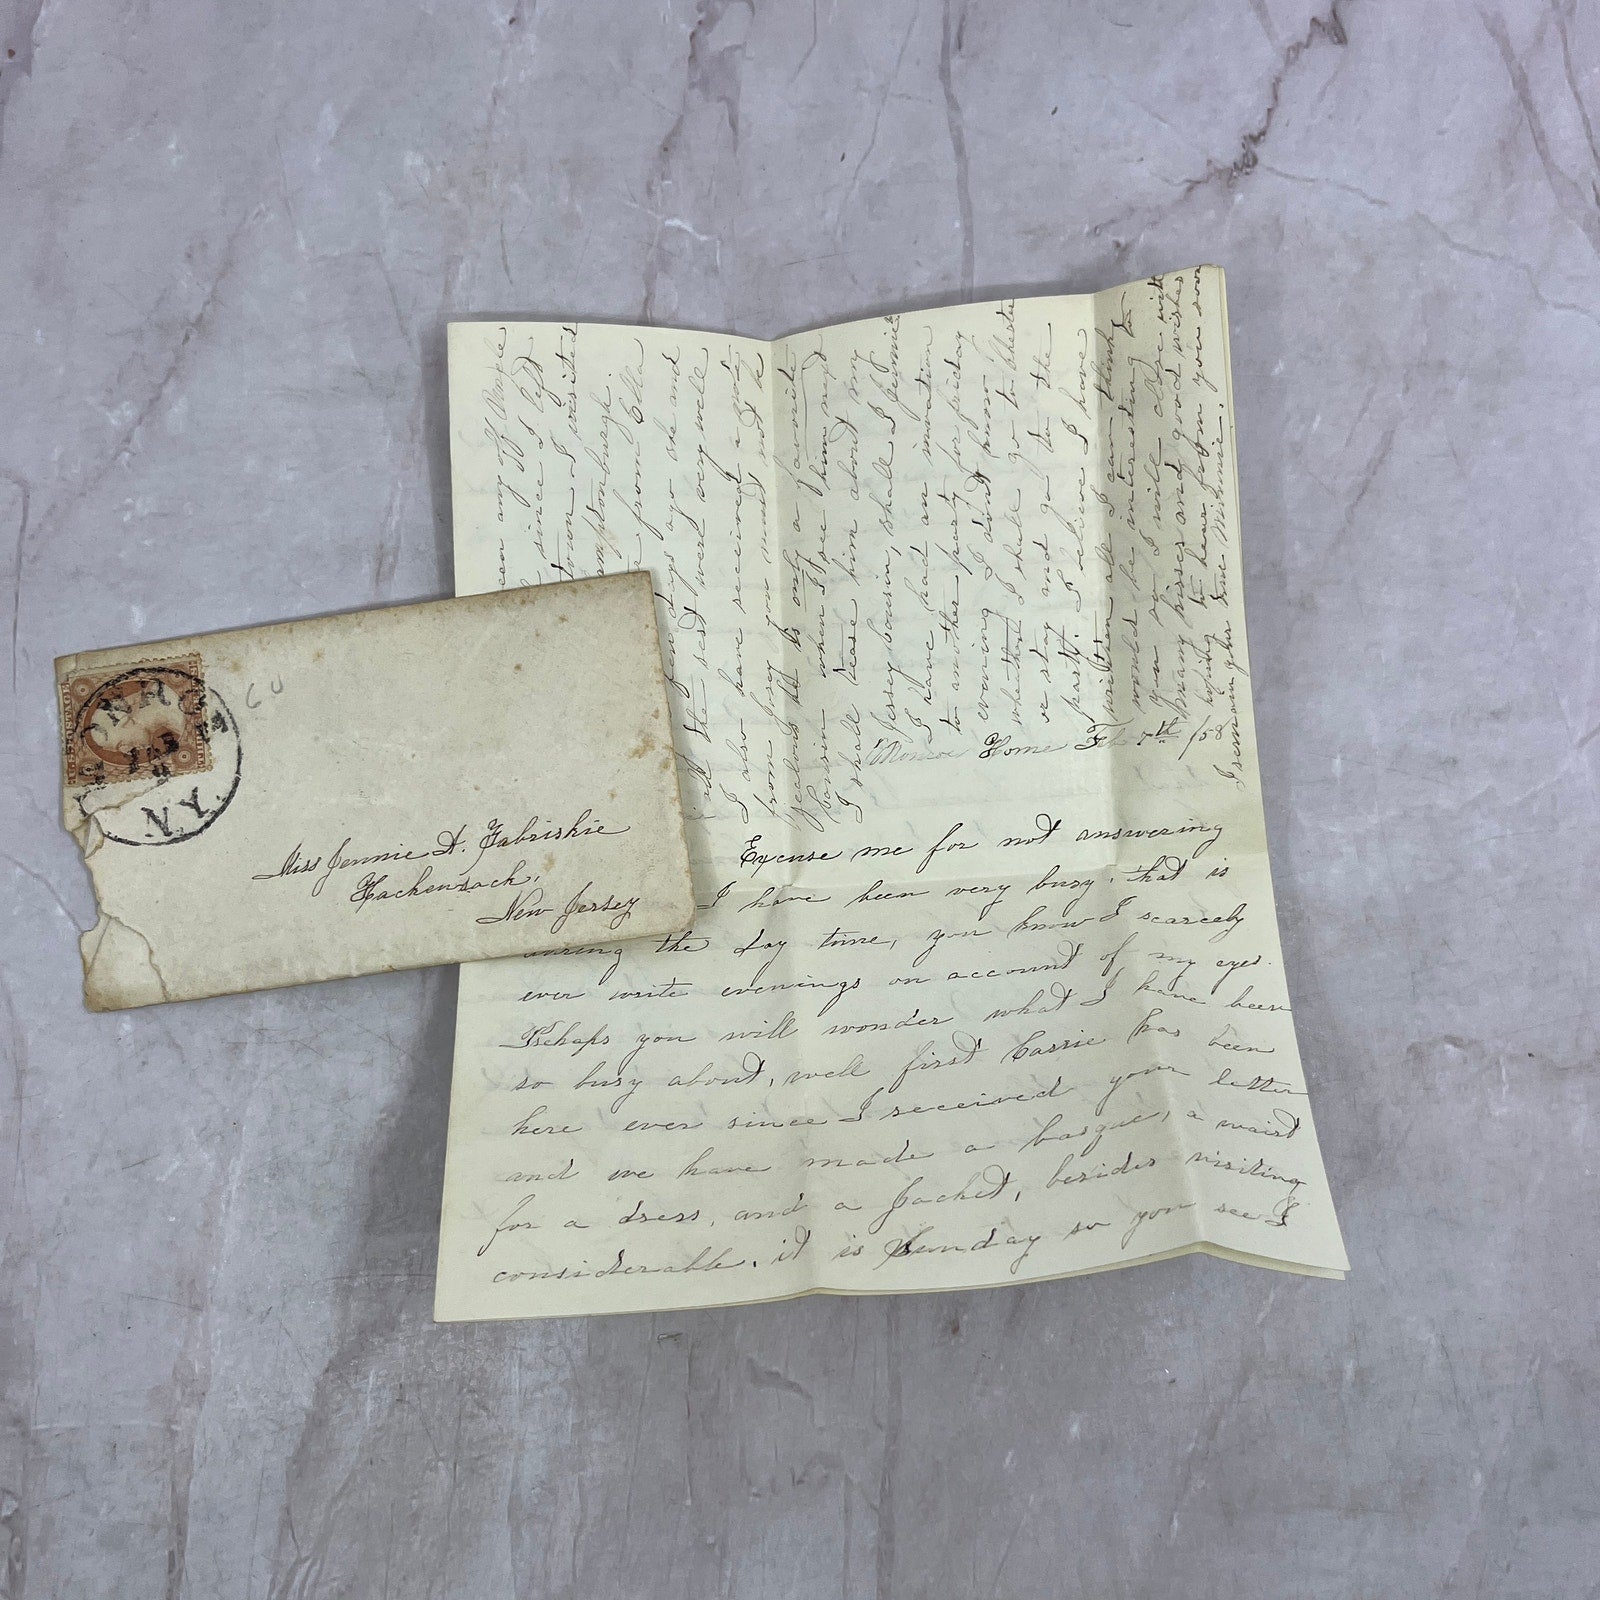 U.S. POSTAGE
MONROE
MAR
N.Y.
Miss Jennie A. Zabriskie
Hackensack,
New Jersey
Monroe Home Feb 7th /58
Excuse me for not answering
I have been very busy, that is
during the day time, you know I scarcely
ever write evenings on account of my eyes.
Perhaps you will wonder what I have been
so busy about, well first Cassie has been
here ever since I received your letter
and we have made a basque, a waist
for a dress, and a Jacket, besides visiting
considerable, it is Sunday so you see I
since I left
town I visited
amptonburgh.
from Ella
few days ago she and
all the rest were very well
I also have received a
from Jersey you must not be
jealous it is only a favorite
Cousin when I see him next
I shall tease him about my
Jersey Cousin, shall I Jennie
I have had an invation
to another party for friday
evening I dont know
whether I shall go to Chester
or stay and go to the
party. I believe I have
written all I can think
would be interesting to
you so I will close with
many kisses and good wishes
hoping to hear from you soon
I remain your true Minnie.